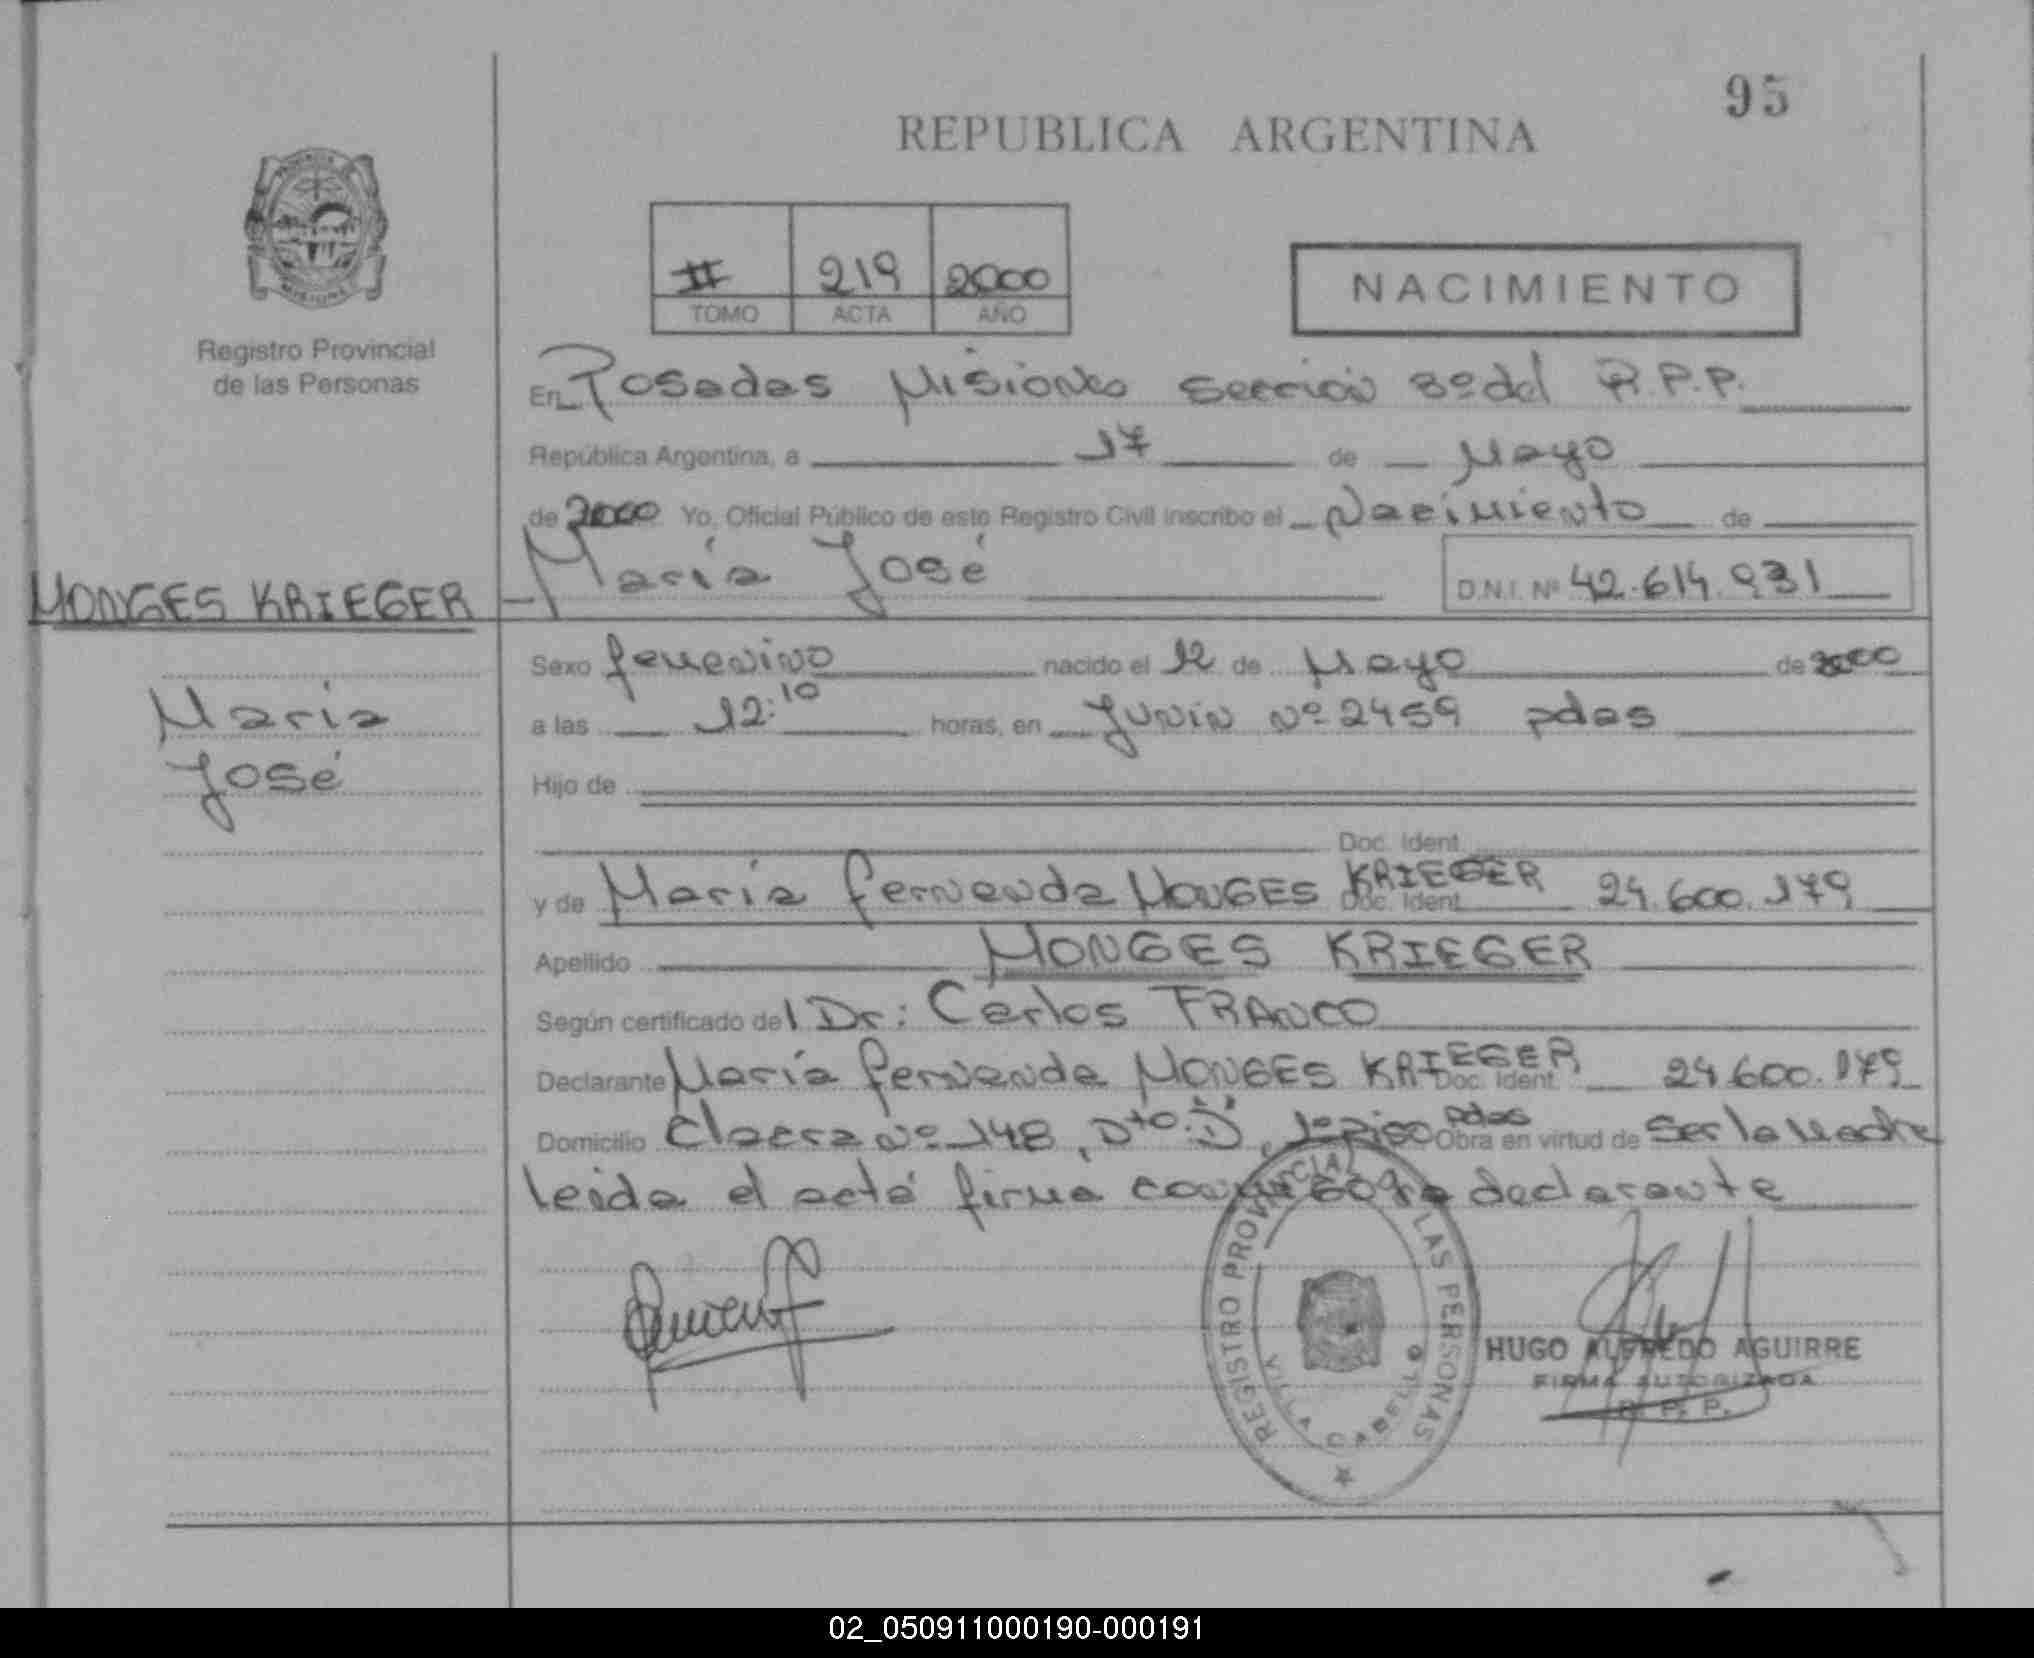 95
REPUBLICA ARGENTINA
PROVINCIA
MISIONES
Registro Provincial
de las Personas
II 219 2000
TOMO ACTA AÑO
NACIMIENTO
En Posadas Misiones sección 3º del R.P.P.
República Argentina, a 17 de Mayo
de 2000 Yo, Oficial Público de este Registro Civil inscribo el Nacimiento de
MONGES KRIEGER
María José D.N.I. Nº 42.614.931
María
José
Sexo femenino nacido el 12 de Mayo de 2000
a las 12:10 horas, en Junín Nº 2459 pdas
Hijo de
Doc. Ident.
y de María fernanda MONGES KRIEGER Doc. Ident. 24.600.179
Apellido MONGES KRIEGER
Según certificado del Dr: Carlos FRANCO
Declarante María fernanda MONGES KRIEGER Doc. Ident. 24.600.179
Domicilio Nº 148, Dto. "D", 1º piso pdas Obra en virtud de Ser la Madre
leida el acta firma declarante
REGISTRO PROVINCIAL LAS PERSONAS
VILLA CABELLO
HUGO ALFREDO AGUIRRE
FIRMA AUTORIZADA
R. P. P.
02_050911000190-000191